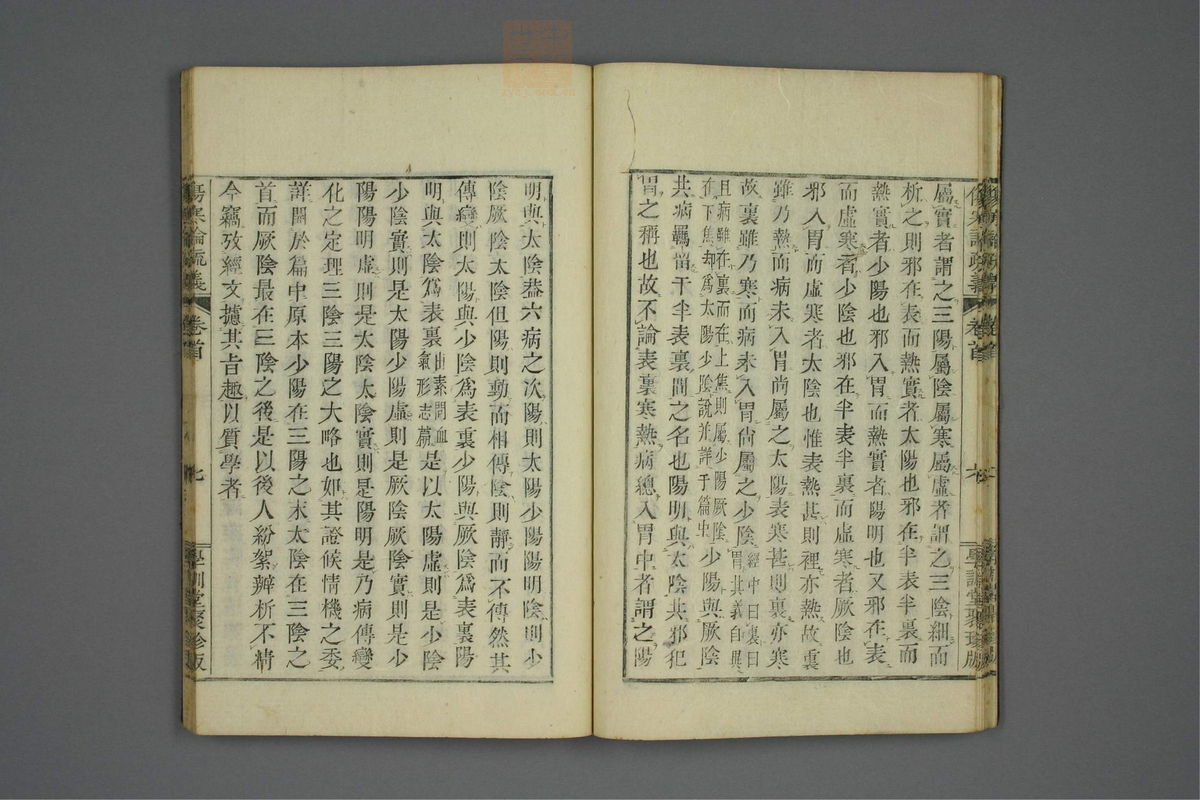 屬實者謂之三陽屬陰屬寒屬虛者謂之三陰細而
析之則邪在表而熱實者太陽也邪在半表半裏而
熱實者少陽也邪入胃而熱實者陽明也又邪在表
而虛寒者少陰也邪在半表半裏而虛寒者厥陰也
邪入胃而虛寒者太陰也惟表熱甚則裡亦熱故裏
雖乃熱而病未入胃尚屬之太陽表寒甚則裏亦寒
故裏雖乃寒而病未入胃尙屬之少陰經中曰裏曰胃其義自異
且病雖在裏而在上焦則屬少陽厥陰在下焦却爲太陽少陰說並詳于篇中少陽與厥陰
共病羈留于半表裏間之名也陽明與太陰共邪犯
胃之稱也故不論表裏寒熱病總入胃中者謂之陽
明與太陰葢六病之次陽則太陽少陽陽明陰則少
陰厥陰太陰但陽則動而相傳陰則靜而不傳然其
傳變則太陽與少陰爲表裏少陽與厥陰爲表裏陽
明與太陰爲表裏由素問血氣形志篇是以太陽虛則是少陰
少陰實則是太陽少陽虛則是厥陰厥陰實則是少
陽陽明虛則是太陰太陰實則是陽明是乃病傳變
化之定理三陰三陽之大略也如其證候情機之委
詳開於篇中原本少陽在三陽之末太陰在三陰之
首而厥陰最在三陰之後是以後人紛絮辨析不精
今竊攷經文攄其旨趣以質學者
傷寒論疏義
卷首
七
學訓堂聚珍版